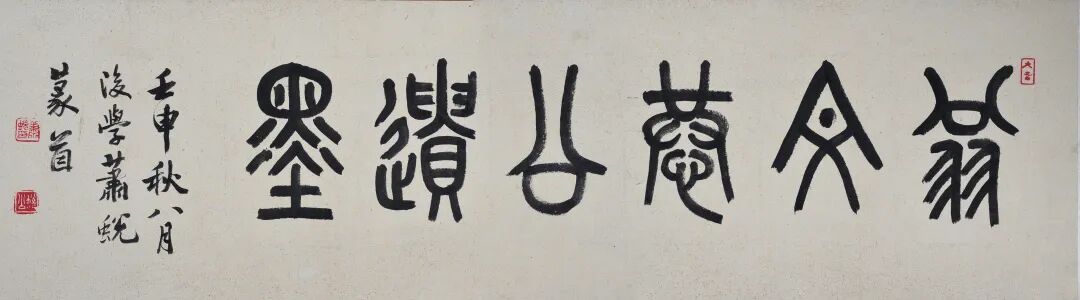 翁文恭公遺墨
壬申秋八月
後學蕭蛻
篆首